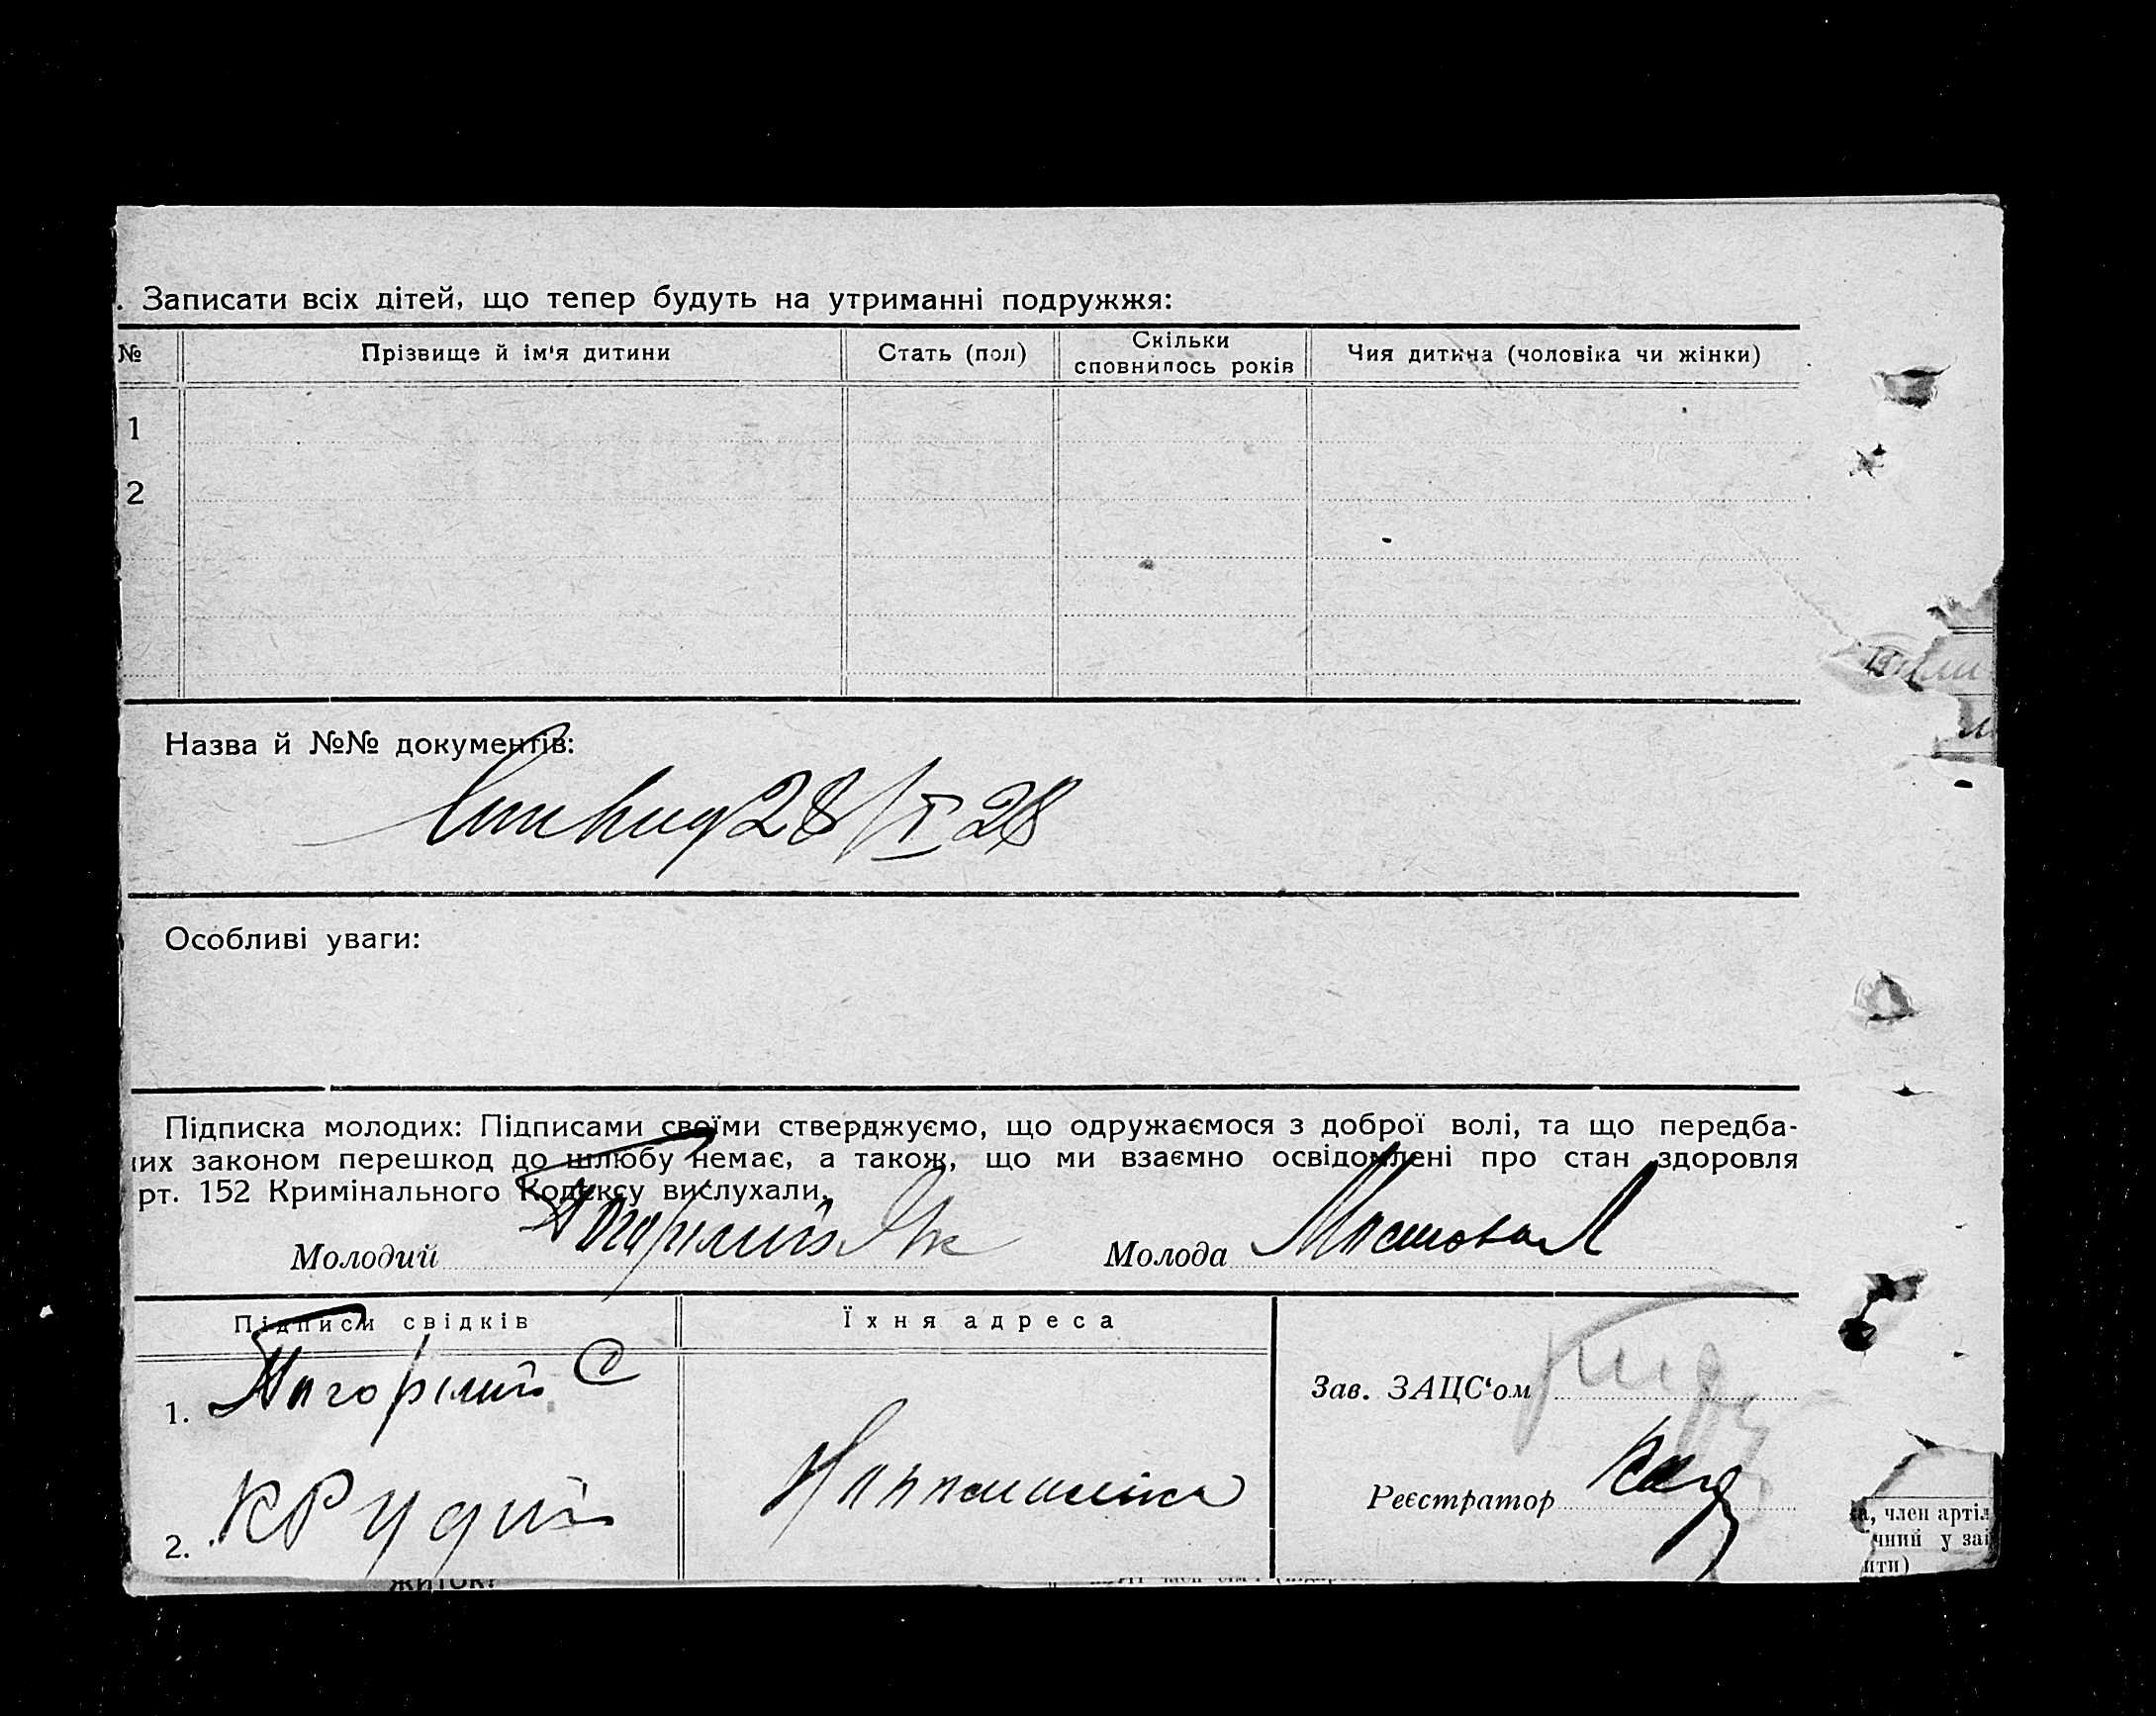 . Записати всіх дітей, що тепер будуть на утриманні подружжя:
№ Прізвище й ім'я дитини Стать (пол) Скільки сповнилось років Чия дитина (чоловіка чи жінки)
1
2
Назва й №№ документів:
28/I 28
Особливі уваги:
Підписка молодих: Підписами своїми стверджуємо, що одружаємося з доброї волі, та що передба-
их законом перешкод до шлюбу немає, а також, що ми взаємно освідомлені про стан здоровля
рт. 152 Кримінального Кодексу вислухали.
Молодий Погорілий Як Молода
Підписи свідків Їхня адреса
1. Погорілий С
Зав. ЗАЦС'ом
2. Крудий
Реєстратор
, член артіл
чний у заі
ити)
житок?